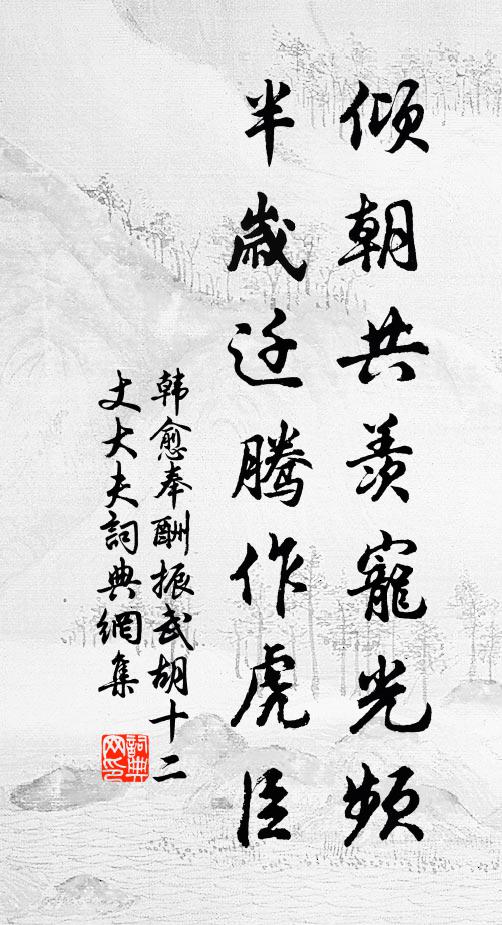 倾朝共羡寵光频
半歲迁腾作虎臣
韩愈奉酬振武胡十二
丈大夫詞典網集
詞典网印